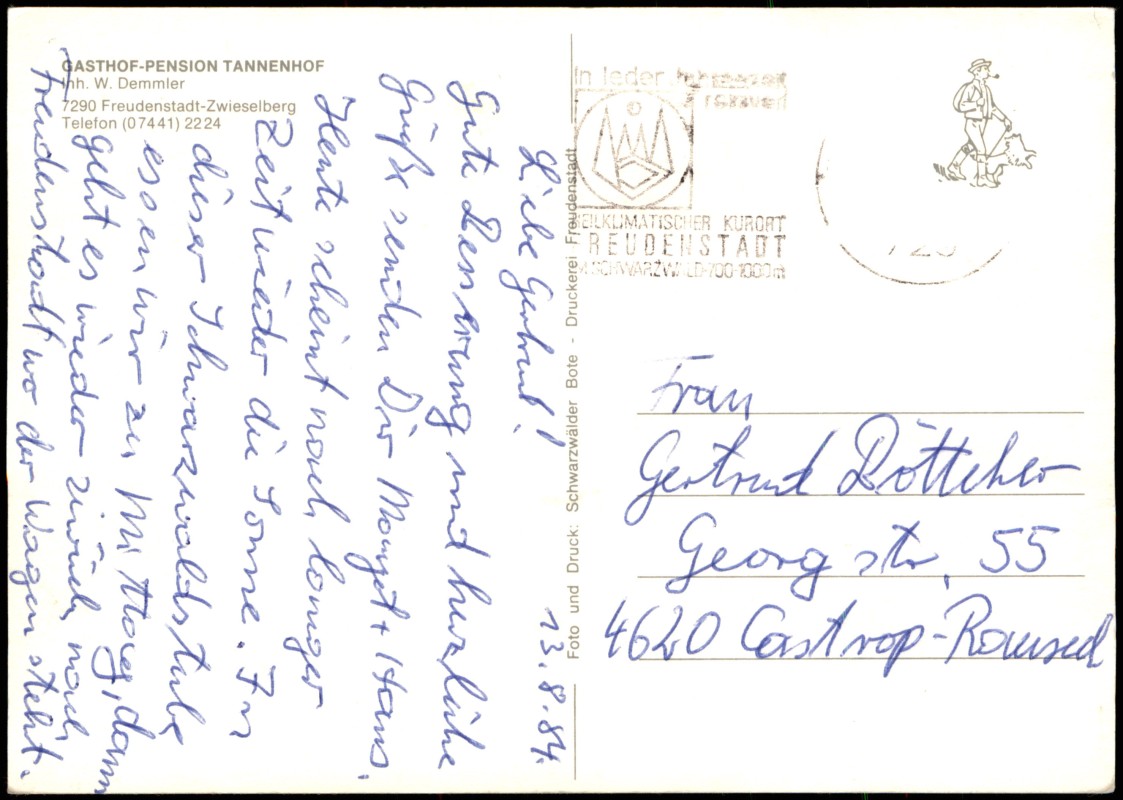 GASTHOF-PENSION TANNENHOF
Inh. W. Demmler
7290 Freudenstadt-Zwieselberg
Telefon (07441) 2224
13.8.84.
Liebe Gertrud!
Gute Besserung und herzliche
Grüße senden Dir Margot + Hans.
Heute scheint nach langer
Zeit wieder die Sonne. In
dieser Schwarzwaldstube
essen wir zu Mittag, dann
geht es wieder zurück nach
Freudenstadt wo der Wagen steht.
Foto und Druck: Schwarzwälder Bote - Druckerei Freudenstadt
In jeder Jahreszeit
HEILKLIMATISCHER KURORT
FREUDENSTADT
IM SCHWARZWALD·700-1000m
Frau
Gertrud Böttcher
Georgstr. 55
4620 Castrop-Rauxel